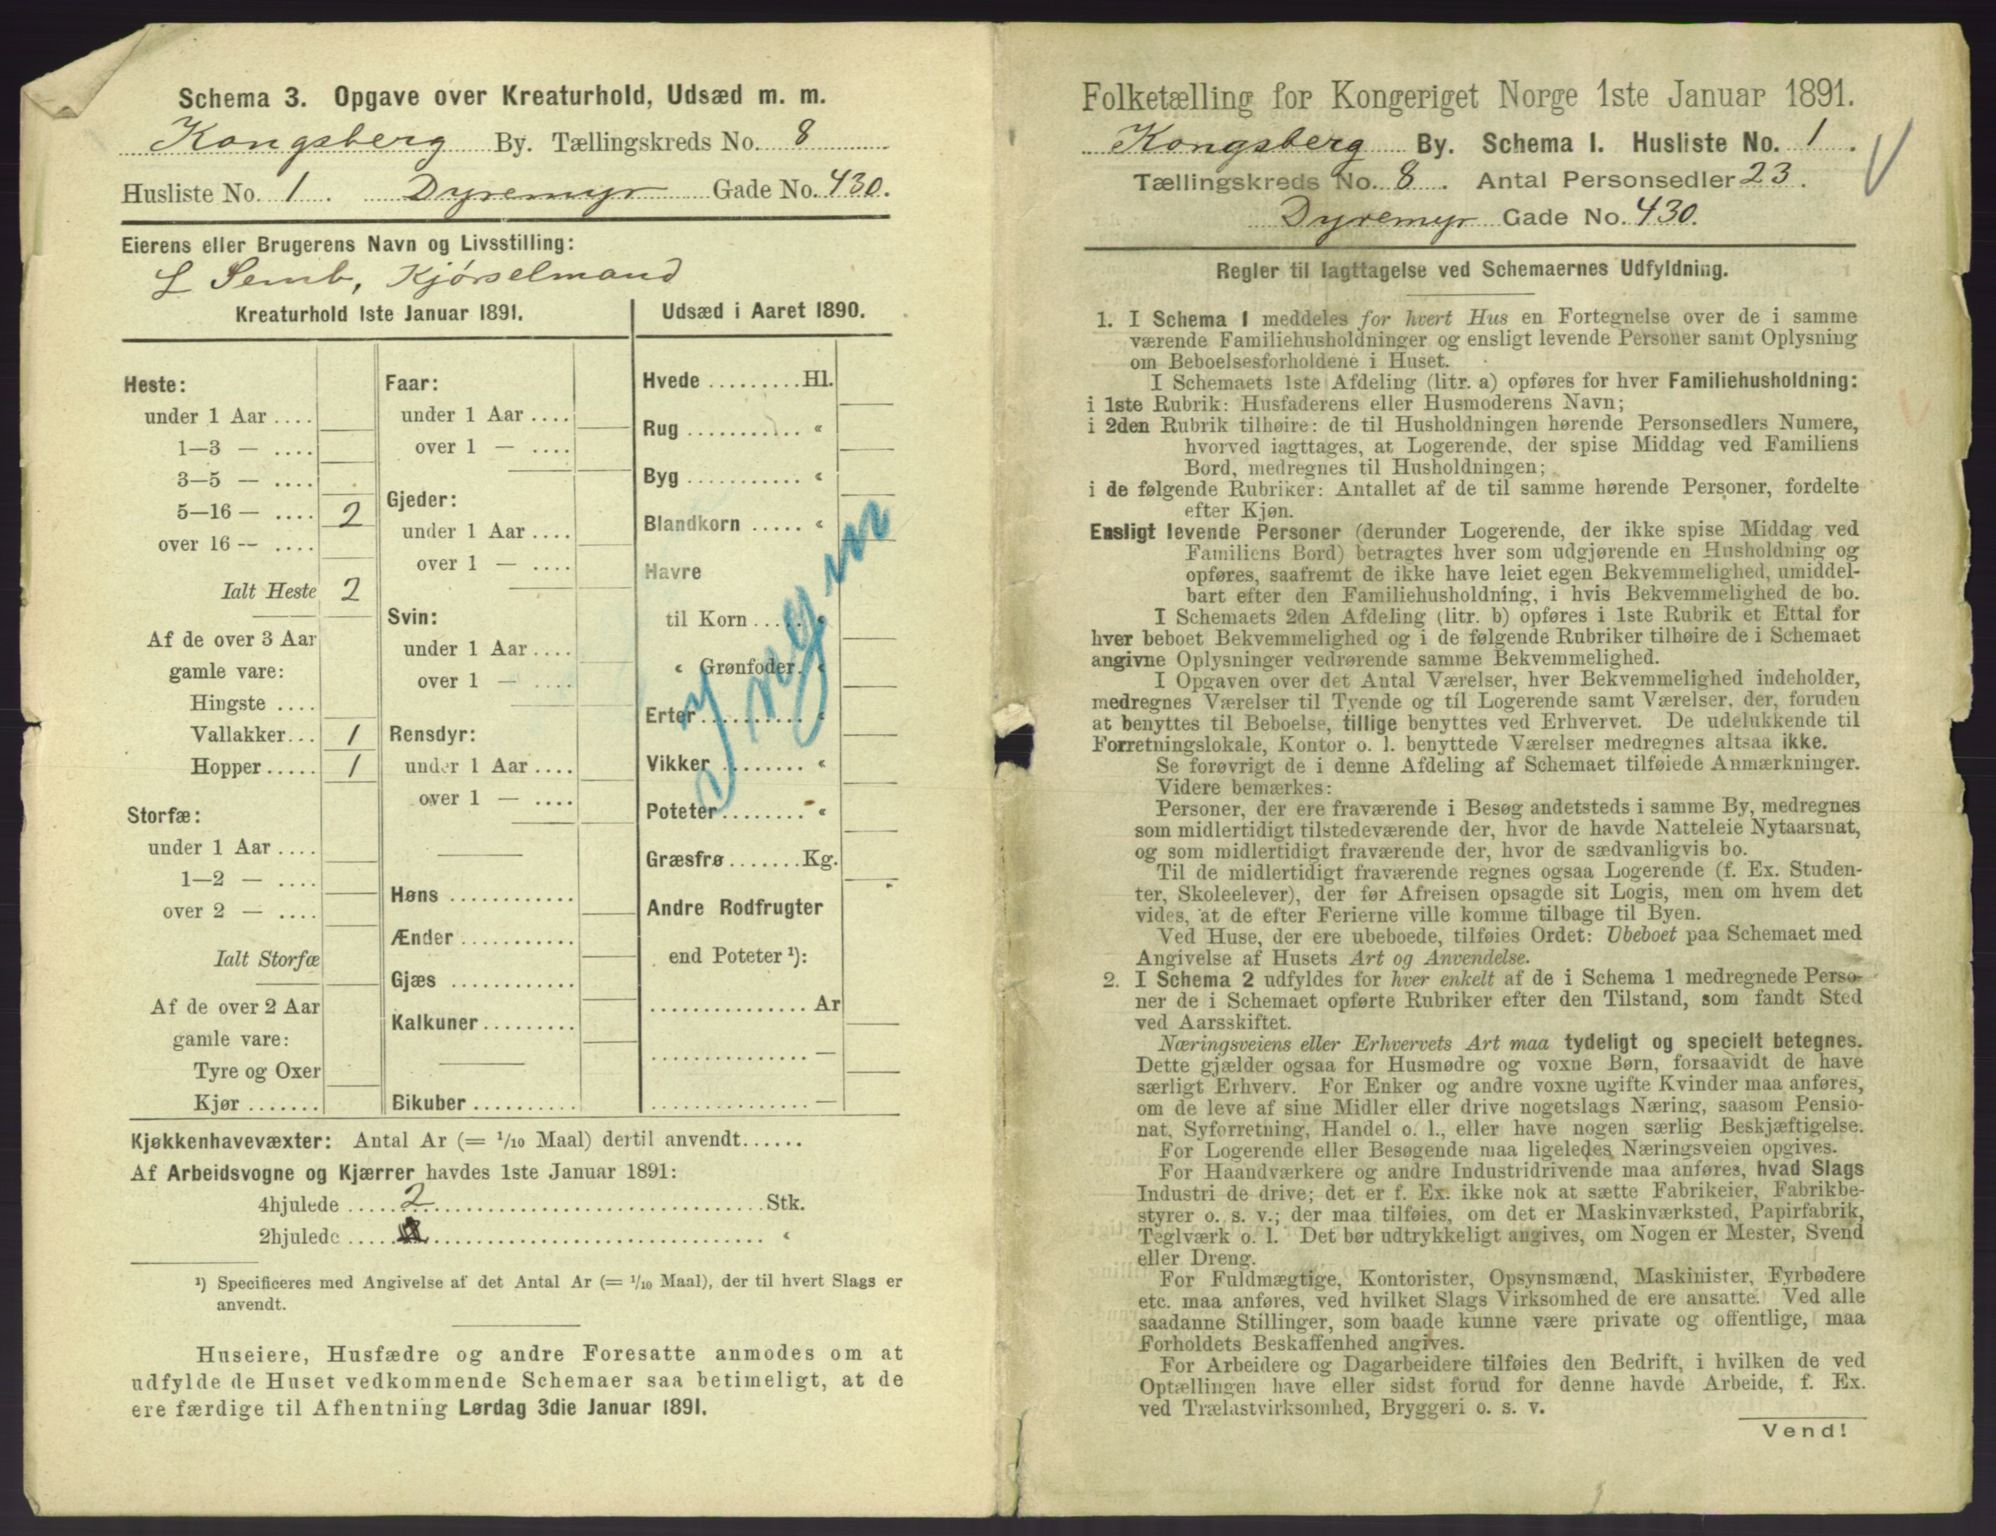 Schema 3. Opgave over Kreaturhold, Udsæd m. m.
Kongsberg By. Tællingskreds No. 8
Husliste No. 1. Dyremyr Gade No. 430.
Eierens eller Brugerens Navn og Livsstilling:
L Semb, Kjørselmand
Kreaturhold 1ste Januar 1891.
Heste:
under 1 Aar ....
1—3 — ....
3—5 — ....
5—16 — .... 2
over 16 — ....
Ialt Heste 2
Af de over 3 Aar
gamle vare:
Hingste ....
Vallakker... 1
Hopper..... 1
Storfæ:
under 1 Aar ....
1—2 — ....
over 2 — ....
Ialt Storfæ
Af de over 2 Aar
gamle vare:
Tyre og Oxer
Kjør.......
Faar:
under 1 Aar ....
over 1 — ....
Gjeder:
under 1 Aar ....
over 1 — ....
Svin:
under 1 Aar ....
over 1 — ....
Rensdyr:
under 1 Aar ....
over 1 — ....
Høns ............
Ænder ...........
Gjæs ............
Kalkuner.........
Bikuber ..........
Udsæd i Aaret 1890.
Hvede .........Hl.
Rug ........... «
Byg ........... «
Blandkorn ..... «
Havre
til Korn ..... «
« Grønfoder. «
Erter.......... «
Vikker ........ «
Poteter........ «
Græsfrø .......Kg.
Andre Rodfrugter
end Poteter ¹):
............... Ar
............... —
............... —
Ingen
Kjøkkenhavevæxter: Antal Ar (= 1/10 Maal) dertil anvendt......
Af Arbeidsvogne og Kjærrer havdes 1ste Januar 1891:
4hjulede ..... 2 ..... Stk.
2hjulede ..... «
¹) Specificeres med Angivelse af det Antal Ar (= 1/10 Maal), der til hvert Slags er
anvendt.
Huseiere, Husfædre og andre Foresatte anmodes om at
udfylde de Huset vedkommende Schemaer saa betimeligt, at de
ere færdige til Afhentning Lørdag 3die Januar 1891.
Folketælling for Kongeriget Norge 1ste Januar 1891.
Kongsberg By. Schema I. Husliste No. 1.
Tællingskreds No. 8. Antal Personsedler 23.
Dyremyr Gade No. 430.
Regler til Iagttagelse ved Schemaernes Udfyldning.
1. I Schema 1 meddeles for hvert Hus en Fortegnelse over de i samme
værende Familiehusholdninger og ensligt levende Personer samt Oplysning
om Beboelsesforholdene i Huset.
I Schemaets 1ste Afdeling (litr. a) opføres for hver Familiehusholdning:
i 1ste Rubrik: Husfaderens eller Husmoderens Navn;
i 2den Rubrik tilhøire: de til Husholdningen hørende Personsedlers Numere,
hvorved iagttages, at Logerende, der spise Middag ved Familiens
Bord, medregnes til Husholdningen;
i de følgende Rubriker: Antallet af de til samme hørende Personer, fordelte
efter Kjøn.
Ensligt levende Personer (derunder Logerende, der ikke spise Middag ved
Familiens Bord) betragtes hver som udgjørende en Husholdning og
opføres, saafremt de ikke have leiet egen Bekvemmelighed, umiddel-
bart efter den Familiehusholdning, i hvis Bekvemmelighed de bo.
I Schemaets 2den Afdeling (litr. b) opføres i 1ste Rubrik et Ettal for
hver beboet Bekvemmelighed og i de følgende Rubriker tilhøire de i Schemaet
angivne Oplysninger vedrørende samme Bekvemmelighed.
I Opgaven over det Antal Værelser, hver Bekvemmelighed indeholder,
medregnes Værelser til Tyende og til Logerende samt Værelser, der, foruden
at benyttes til Beboelse, tillige benyttes ved Erhvervet. De udelukkende til
Forretningslokale, Kontor o. l. benyttede Værelser medregnes altsaa ikke.
Se forøvrigt de i denne Afdeling af Schemaet tilføiede Anmærkninger.
Videre bemærkes:
Personer, der ere fraværende i Besøg andetsteds i samme By, medregnes
som midlertidigt tilstedeværende der, hvor de havde Natteleie Nytaarsnat,
og som midlertidigt fraværende der, hvor de sædvanligvis bo.
Til de midlertidigt fraværende regnes ogsaa Logerende (f. Ex. Studen-
ter, Skoleelever), der før Afreisen opsagde sit Logis, men om hvem det
vides, at de efter Ferierne ville komme tilbage til Byen.
Ved Huse, der ere ubeboede, tilføies Ordet: Ubeboet paa Schemaet med
Angivelse af Husets Art og Anvendelse.
2. I Schema 2 udfyldes for hver enkelt af de i Schema 1 medregnede Perso-
ner de i Schemaet opførte Rubriker efter den Tilstand, som fandt Sted
ved Aarsskiftet.
Næringsveiens eller Erhvervets Art maa tydeligt og specielt betegnes.
Dette gjælder ogsaa for Husmødre og voxne Børn, forsaavidt de have
særligt Erhverv. For Enker og andre voxne ugifte Kvinder maa anføres,
om de leve af sine Midler eller drive nogetslags Næring, saasom Pensio-
nat, Syforretning, Handel o. l., eller have nogen særlig Beskjæftigelse.
For Logerende eller Besøgende maa ligeledes Næringsveien opgives.
For Haandværkere og andre Industridrivende maa anføres, hvad Slags
Industri de drive; det er f. Ex. ikke nok at sætte Fabrikeier, Fabrikbe-
styrer o. s. v.; der maa tilføies, om det er Maskinværksted, Papirfabrik,
Teglværk o. l. Det bør udtrykkeligt angives, om Nogen er Mester, Svend
eller Dreng.
For Fuldmægtige, Kontorister, Opsynsmænd, Maskinister, Fyrbødere
etc. maa anføres, ved hvilket Slags Virksomhed de ere ansatte. Ved alle
saadanne Stillinger, som baade kunne være private og offentlige, maa
Forholdets Beskaffenhed angives.
For Arbeidere og Dagarbeidere tilføies den Bedrift, i hvilken de ved
Optællingen have eller sidst forud for denne havde Arbeide, f. Ex.
ved Trælastvirksomhed, Bryggeri o. s. v.
Vend!